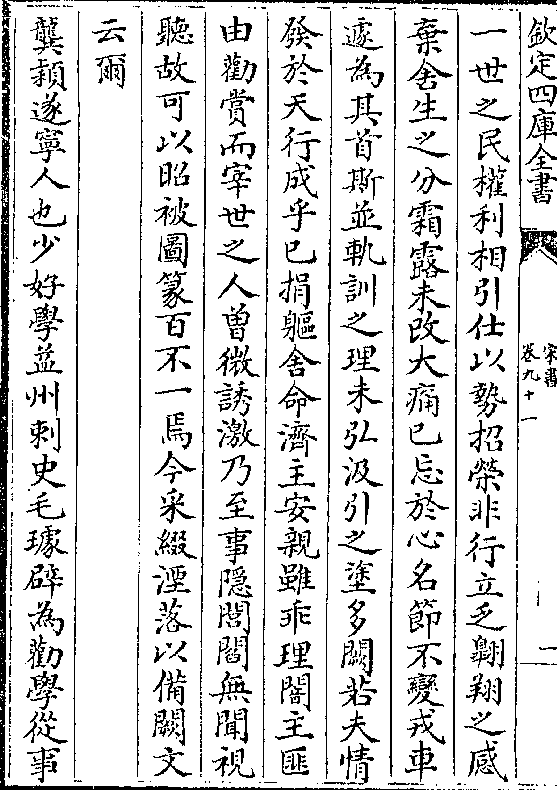 欽定四庫全書
宋書
卷九十一
一
一世之民權利相引仕以勢招榮非行立乏翺翔之感
棄舍生之分霜露未改大痛已忘於心名節不變戎車
遽為其首斯並軌訓之理未弘汲引之塗多闕若夫情
發於天行成乎已捐軀舍命濟主安親雖乖理闇主匪
由勸賞而宰世之人曽微誘激乃至事隱閭閻無聞視
聽故可以昭被圖篆百不一焉今采綴湮落以備闕文
云爾
龔頴遂寧人也少好學益州刺史毛璩辟為勸學從事